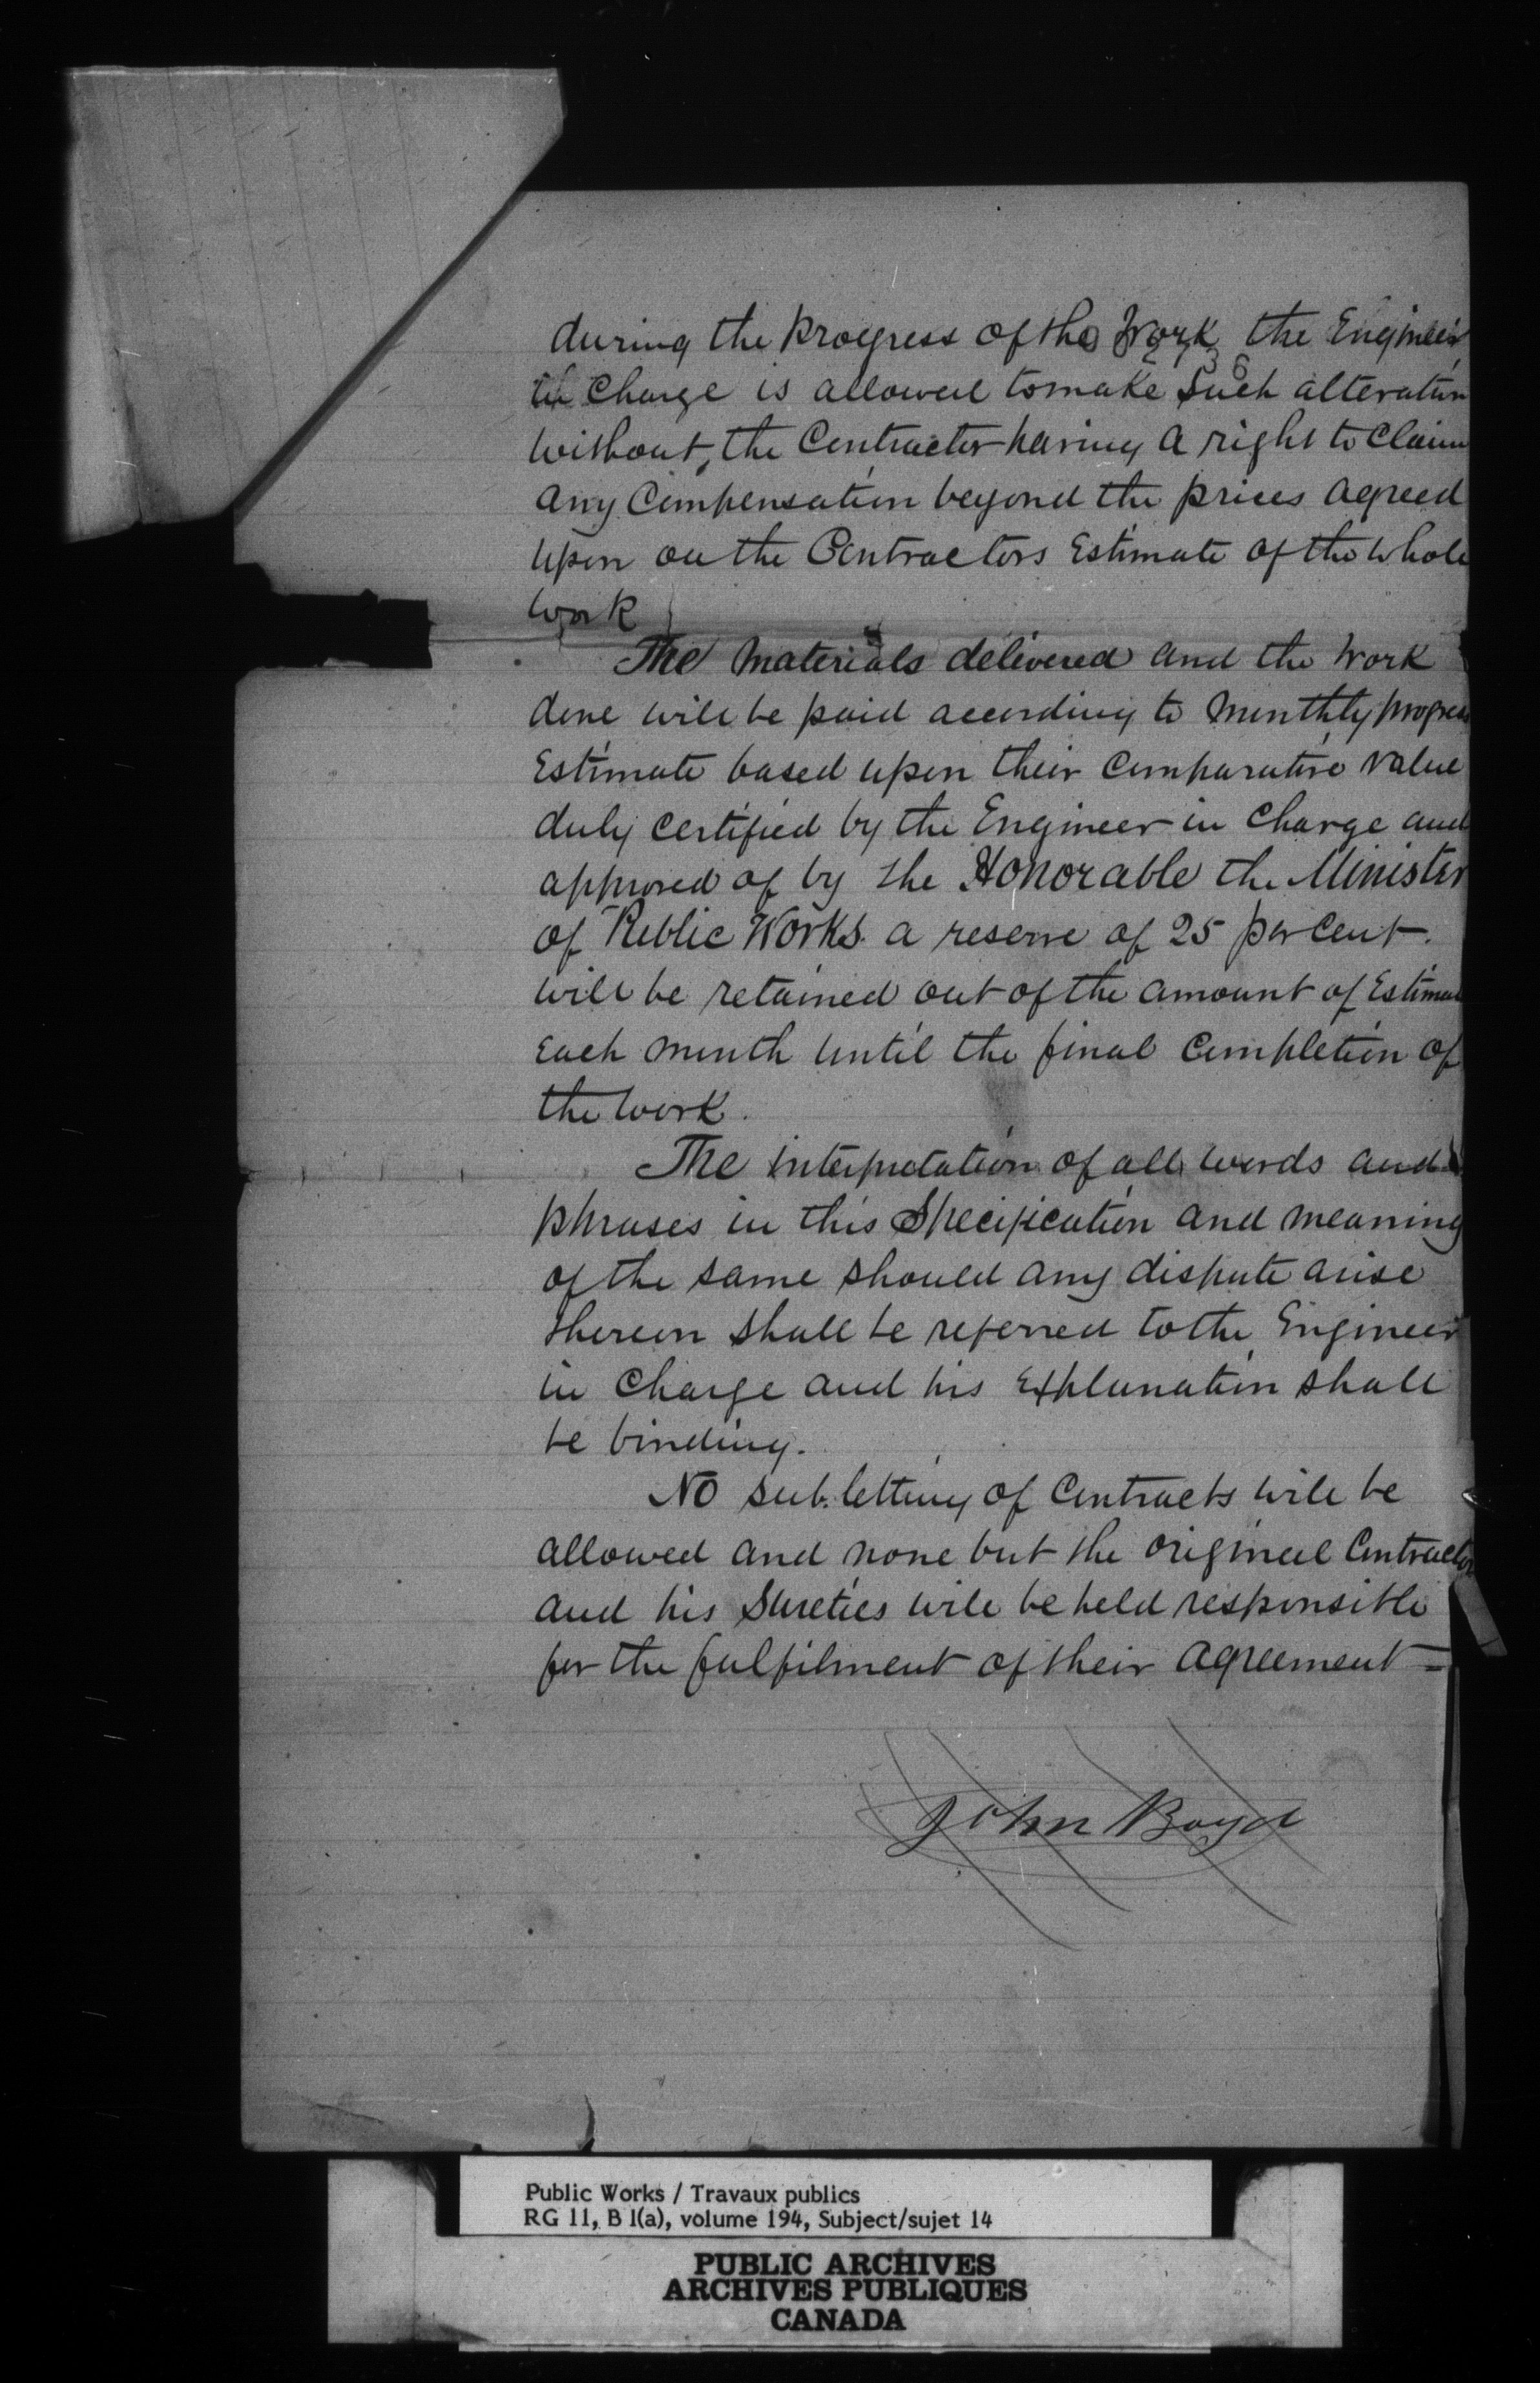 during the progress of the Work the Engineer
in Charge is allowed to make such alteration
without the Contractor having a right to Claim
any Compensation beyond the prices agreed
upon on the Contractors Estimate of the whole
work
The materials delivered and the work
done will be paid according to monthly progress
Estimate based upon their comparative value
duly certified by the Engineer in Charge and
approved of by the Honorable the Minister
of Public Works. a reserve of 25 per Cent.
will be retained out of the amount of Estimate
Each month until the final Completion of
the work.
The interpretation of all words and
phrases in this Specification and meaning
of the same should any dispute arise
thereon shall be referred to the Engineer
in Charge and his Explanation shall
be binding.
No sub.letting of Contracts will be
allowed and none but the original Contractor
and his Sureties will be held responsible
for the fulfilment of their agreement =
John Boyd
Public Works / Travaux publics
RG 11, B 1(a), volume 194, Subject/sujet 14
PUBLIC ARCHIVES
ARCHIVES PUBLIQUES
CANADA